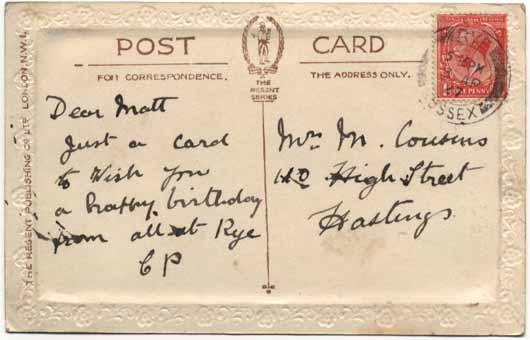 POST CARD
FOR CORRESPONDENCE. THE ADDRESS ONLY.
THE
REGENT
SERIES
THE REGENT PUBLISHING Co LTD LONDON, N.W.1.
Dear Matt
Just a card
to Wish you
a happy birthday
from all at Rye
CP
Mrs M. Cousins
110 High Street
Hastings.
RYE
SUSSEX
PENNY